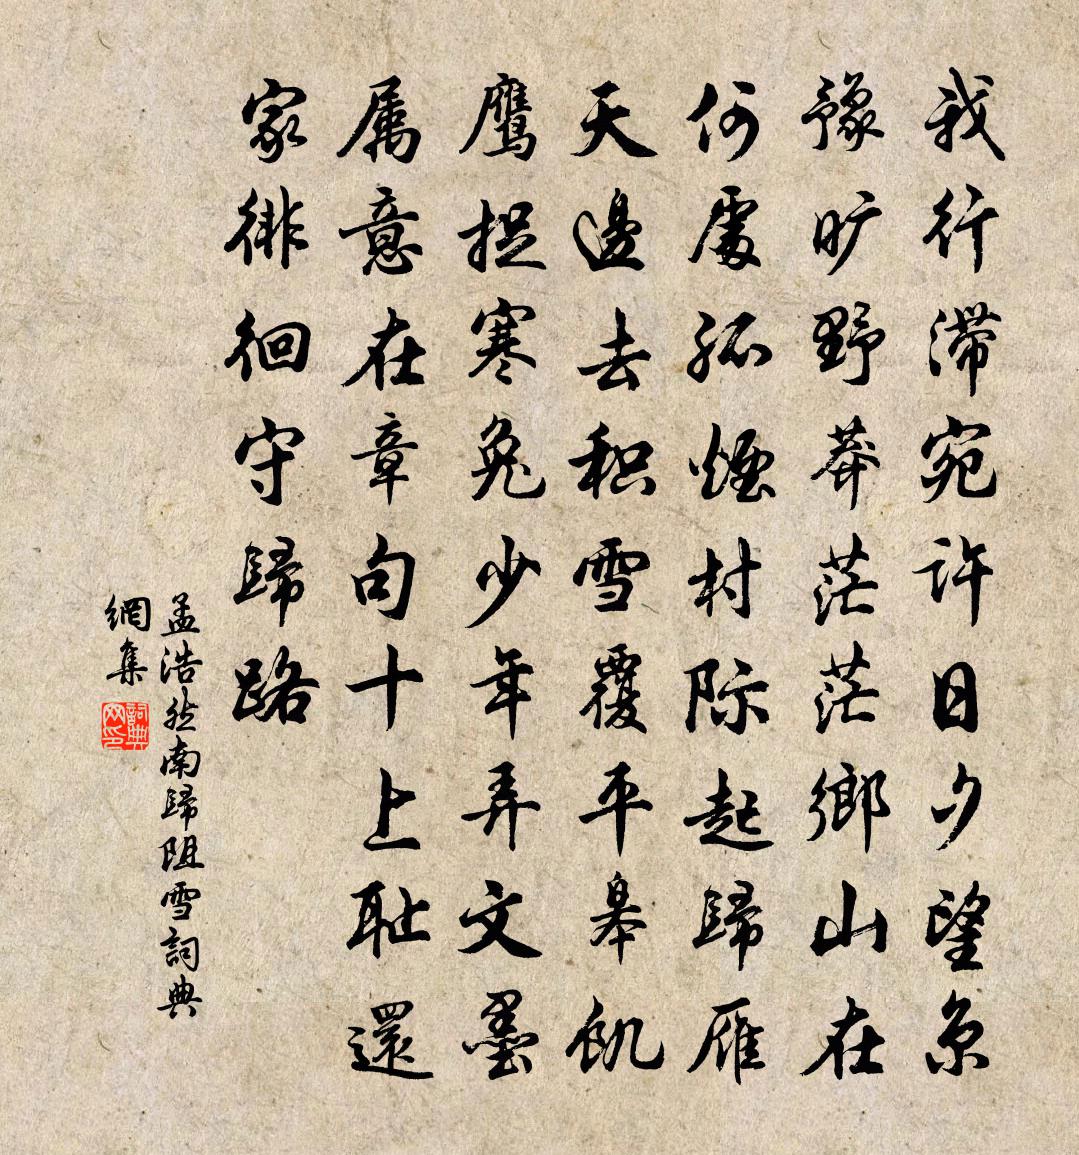 我行滞宛许日夕望京
豫旷野莽茫茫鄉山在
何處孤煙村际起歸雁
天邊去积雪覆平皋飢
鷹捉寒兔少年弄文墨
属意在章句十上耻還
家徘徊守歸路
孟浩然南歸阻雪詞典
網集
詞典
网印